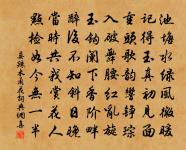 池塘水綠風微暖
記得玉真初見面
重頭歌韻響琤琮
入破舞腰紅亂旋
玉鉤闌下香階畔
醉後不知斜日晚
當時共我賞花人
點檢如今無一半
晏殊木蘭花